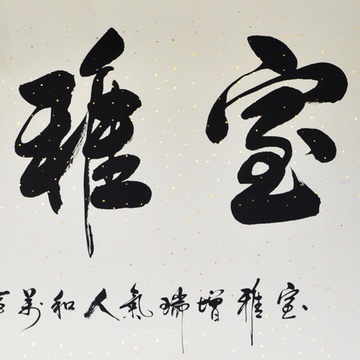 室雅
室雅增瑞氣人和萬